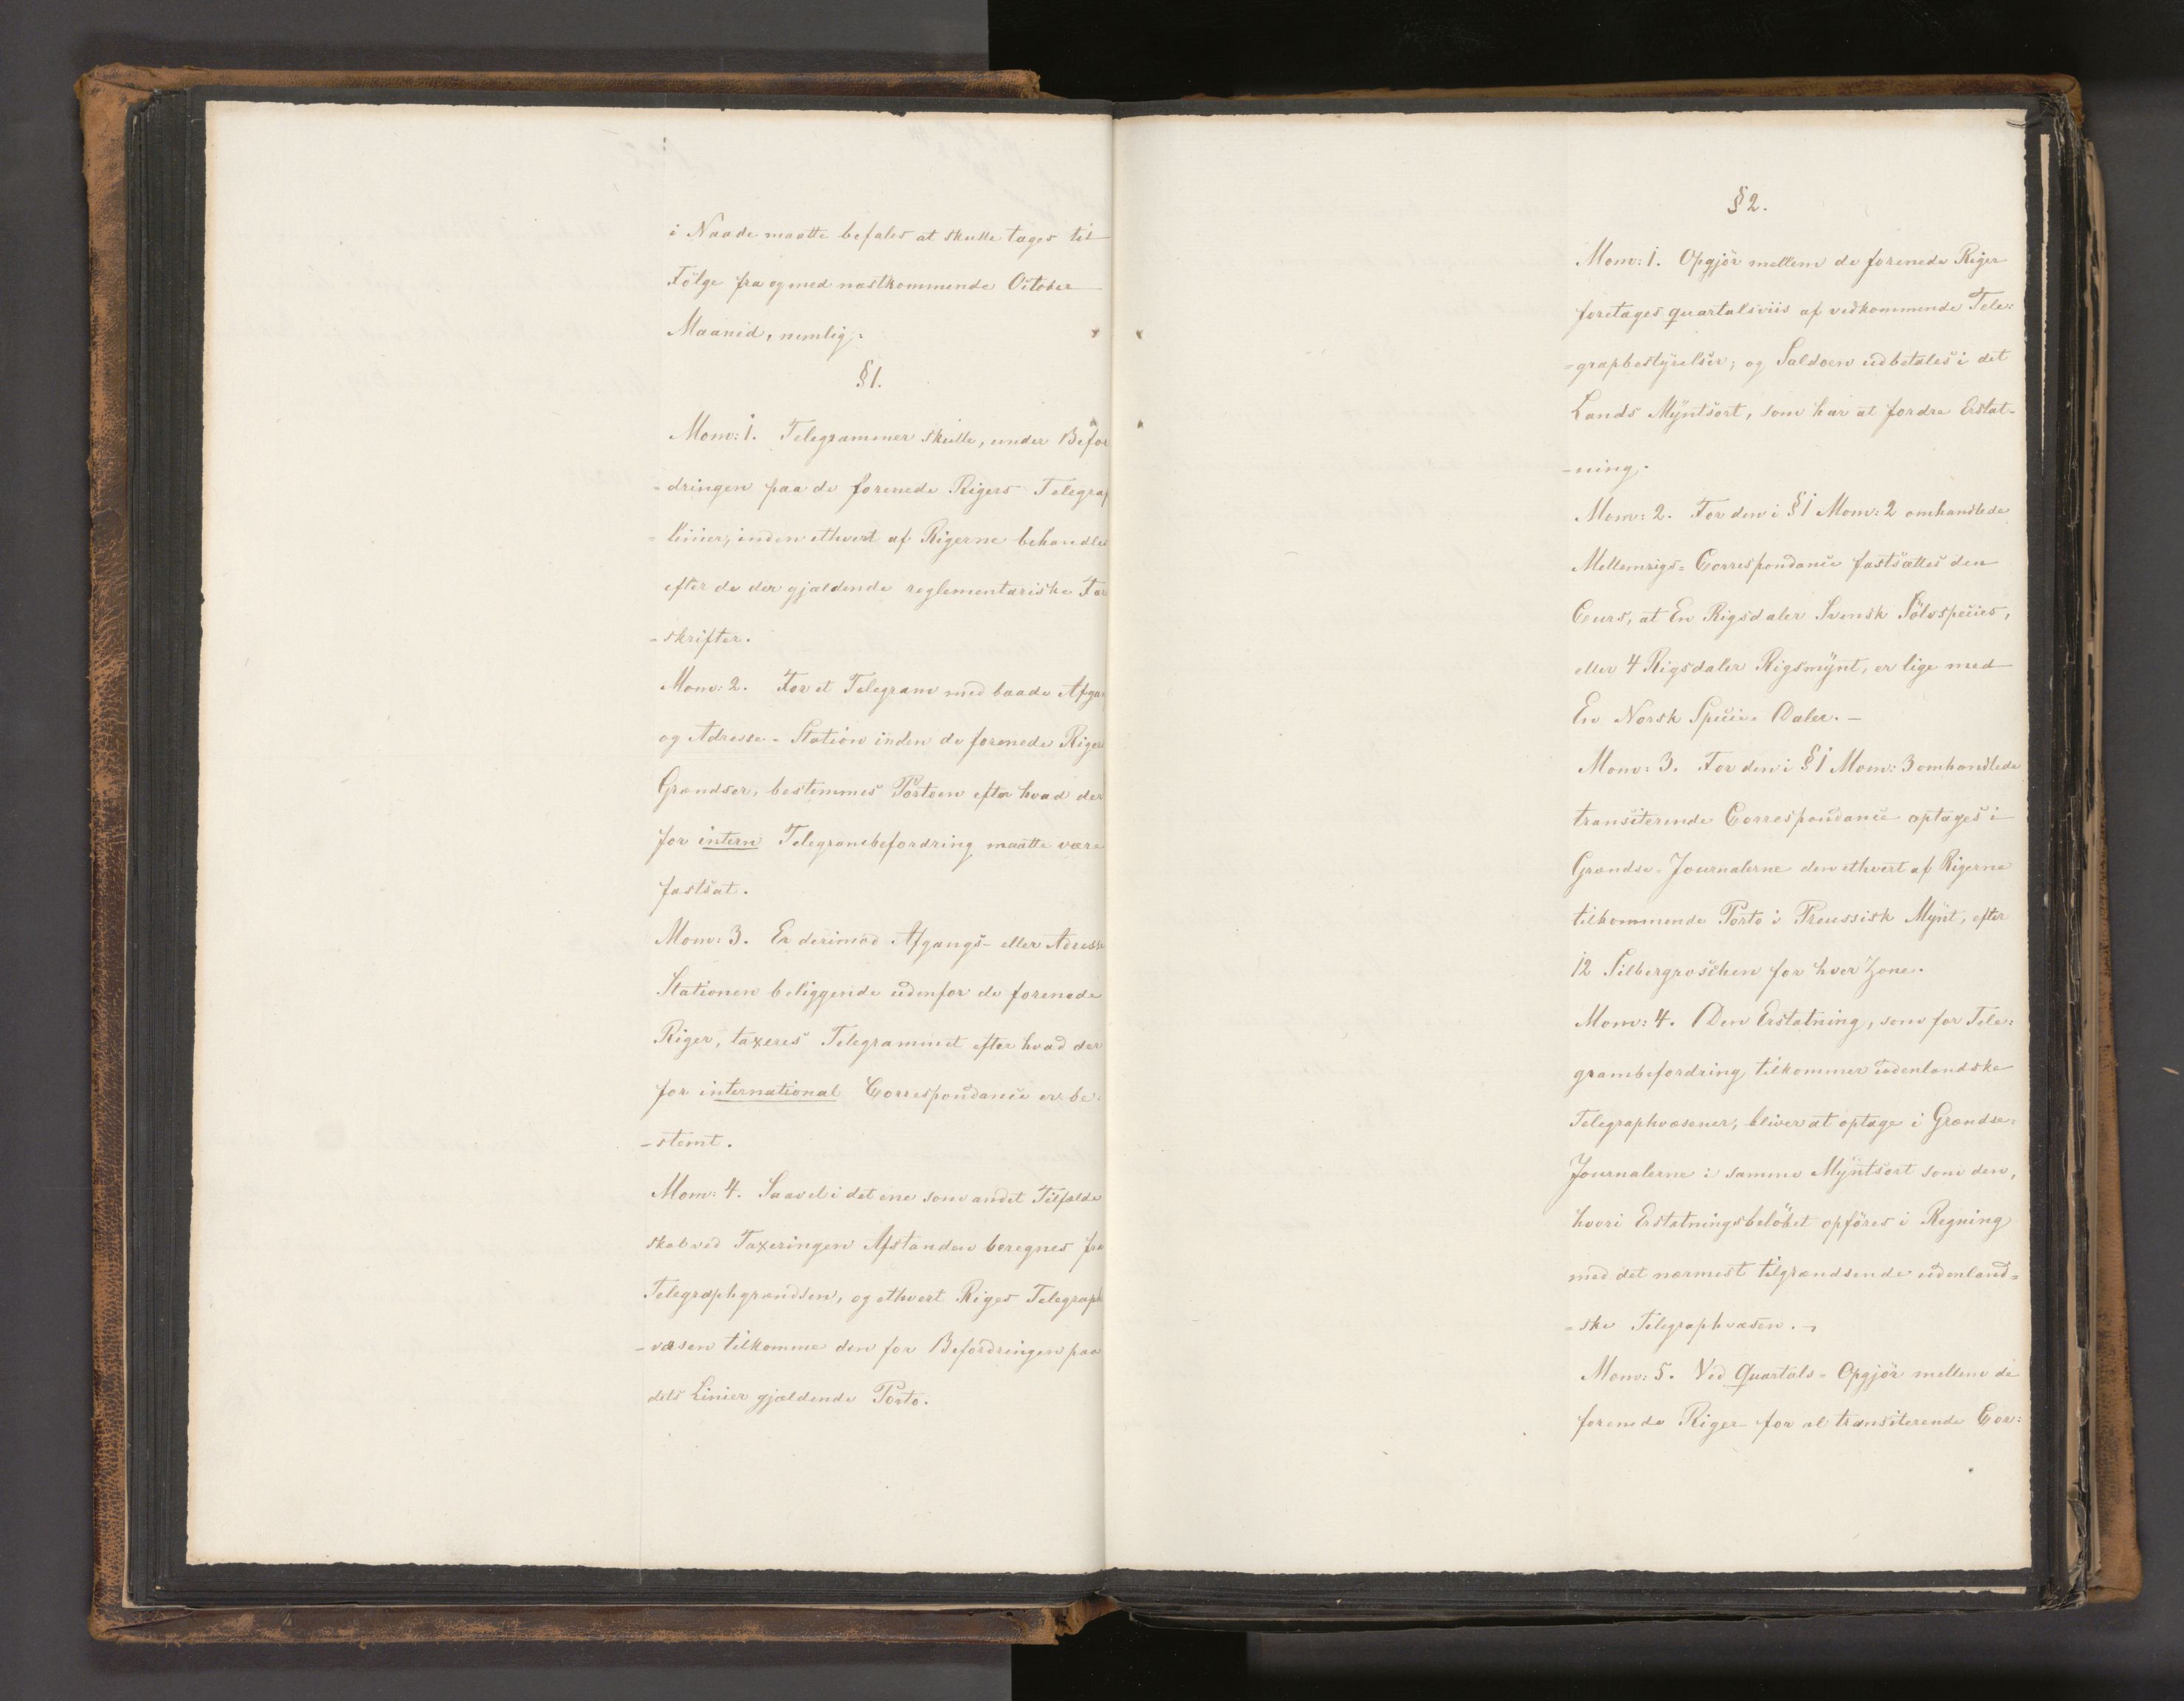 i Naade maatte befales at skulle tages til
Følge fra og med næstkommende October
Maaned, nemlig:
§1.
Mom: 1. Telegrammer skulle, under Befor
-dringen paa de forenede Rigers Telegraf
-linier, inden ethvert af Rigerne behandles
efter de der gjældende reglementariske For
-skrifter.
Mom: 2. For et Telegram med baade Afga
og Adresse-Station inden de forenede Rigers
Grændser, bestemmes Portoen efter hvad der
for intern Telegrambefordring maatte være
fastsat.
Mom: 3. Er derimod Afgangs- eller Adresse
Stationen beliggende udenfor de forenede
Riger, taxeres Telegrammet efter hvad der
for international Correspondance er be-
-stemt.
Mom: 4. Saavel i det ene som andet Tilfælde
skal ved Taxeringen Afstanden beregnes fra
Telegraphgrændsen, og ethvert Riges Telegraph
-væsen tilkomme den for Befordringen paa
dets Linier gjældende Porto.
§2.
Mom: 1. Opgjør mellem de forenede Riger
foretages quartalsviis af vedkommende Tele-
-grapbestyrelser; og Saldoen udbetales i det
Lands Myntsort, som har at fordre Erstat-
-ning.
Mom: 2. For den i §1 Mom: 2 omhandlede
Mellemrigs-Correspondance fastsættes den
Curs, at En Rigsdaler Svensk Sølvspecies,
eller 4 Rigsdaler Rigsmynt, er lige med
En Norsk Specie-Daler. -
Mom: 3. For den i §1 Mom: 3 omhandlede
transiterende Correspondance optages i
Grændse-Journalerne den ethvert af Rigerne
tilkommende Porto i Preussisk Mynt, efter
12 Silbergroschen for hver Zone.
Mom: 4. Den Erstatning, som for Tele-
grambefordring tilkommer udenlandske
Telegraphvæsener, bliver at optage i Grændse-
Journalerne i samme Myntsort som den,
hvori Erstatningsbeløbet opføres i Regning
med det nærmest tilgrændsende udenland-
-ske Telegraphvæsen. -
Mom: 5. Ved Quartals-Opgjør mellem de
forenede Riger for al transiterende Cor-